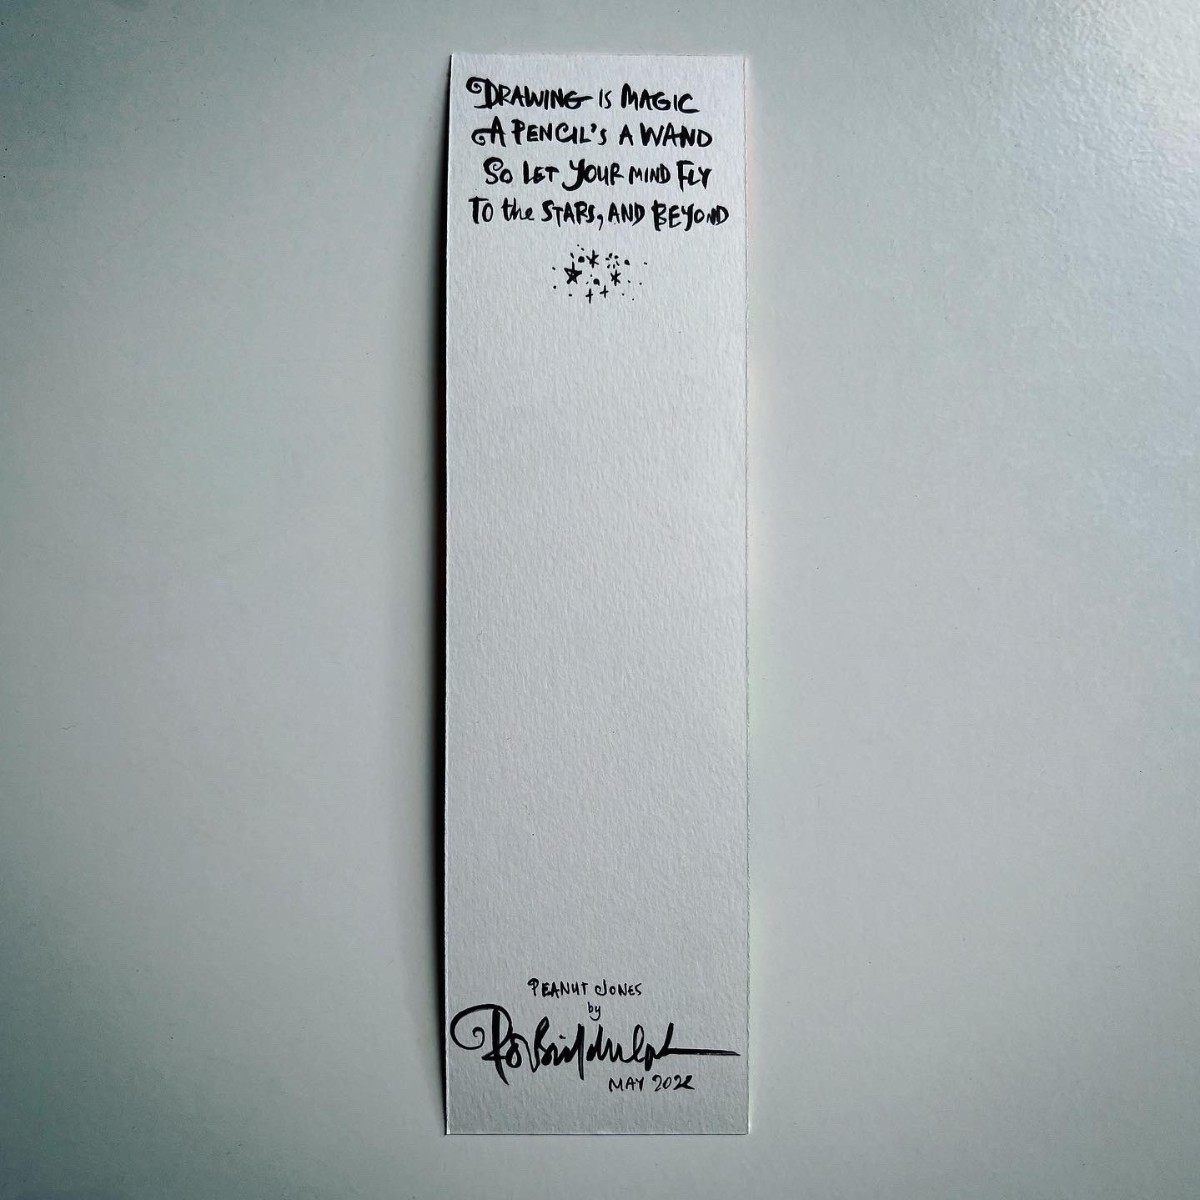 DRAWING IS MAGIC
A PENCIL'S A WAND
SO LET YOUR MIND FLY
TO the STARS, AND BEYOND
PEANUT JONES
by
Rob Biddulph
MAY 2022